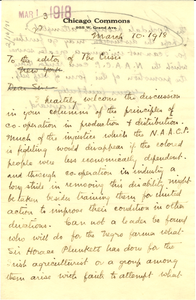 MAR 13 1918
Chicago Commons
955 W. Grand Ave.
March 10. 1918
To the editor of The Crisis
New York
Dear Sir:-
I heartily welcome the discussion
in your columns of the principles of
co-operation in production & distribution.
Much of the injustice which the N.A.A.C.P.
is fighting would disappear if the colored
people were less economically dependent.
and through co-operation in industry a
long step in removing this disability might
be taken besides training them for united
action to improve their condition in other
directions. Can not a leader be found
who will do for the Negro farmer what
Sir Horace Plunkett has done for
the Irish agriculturist or a group among
them arise with faith to attempt what